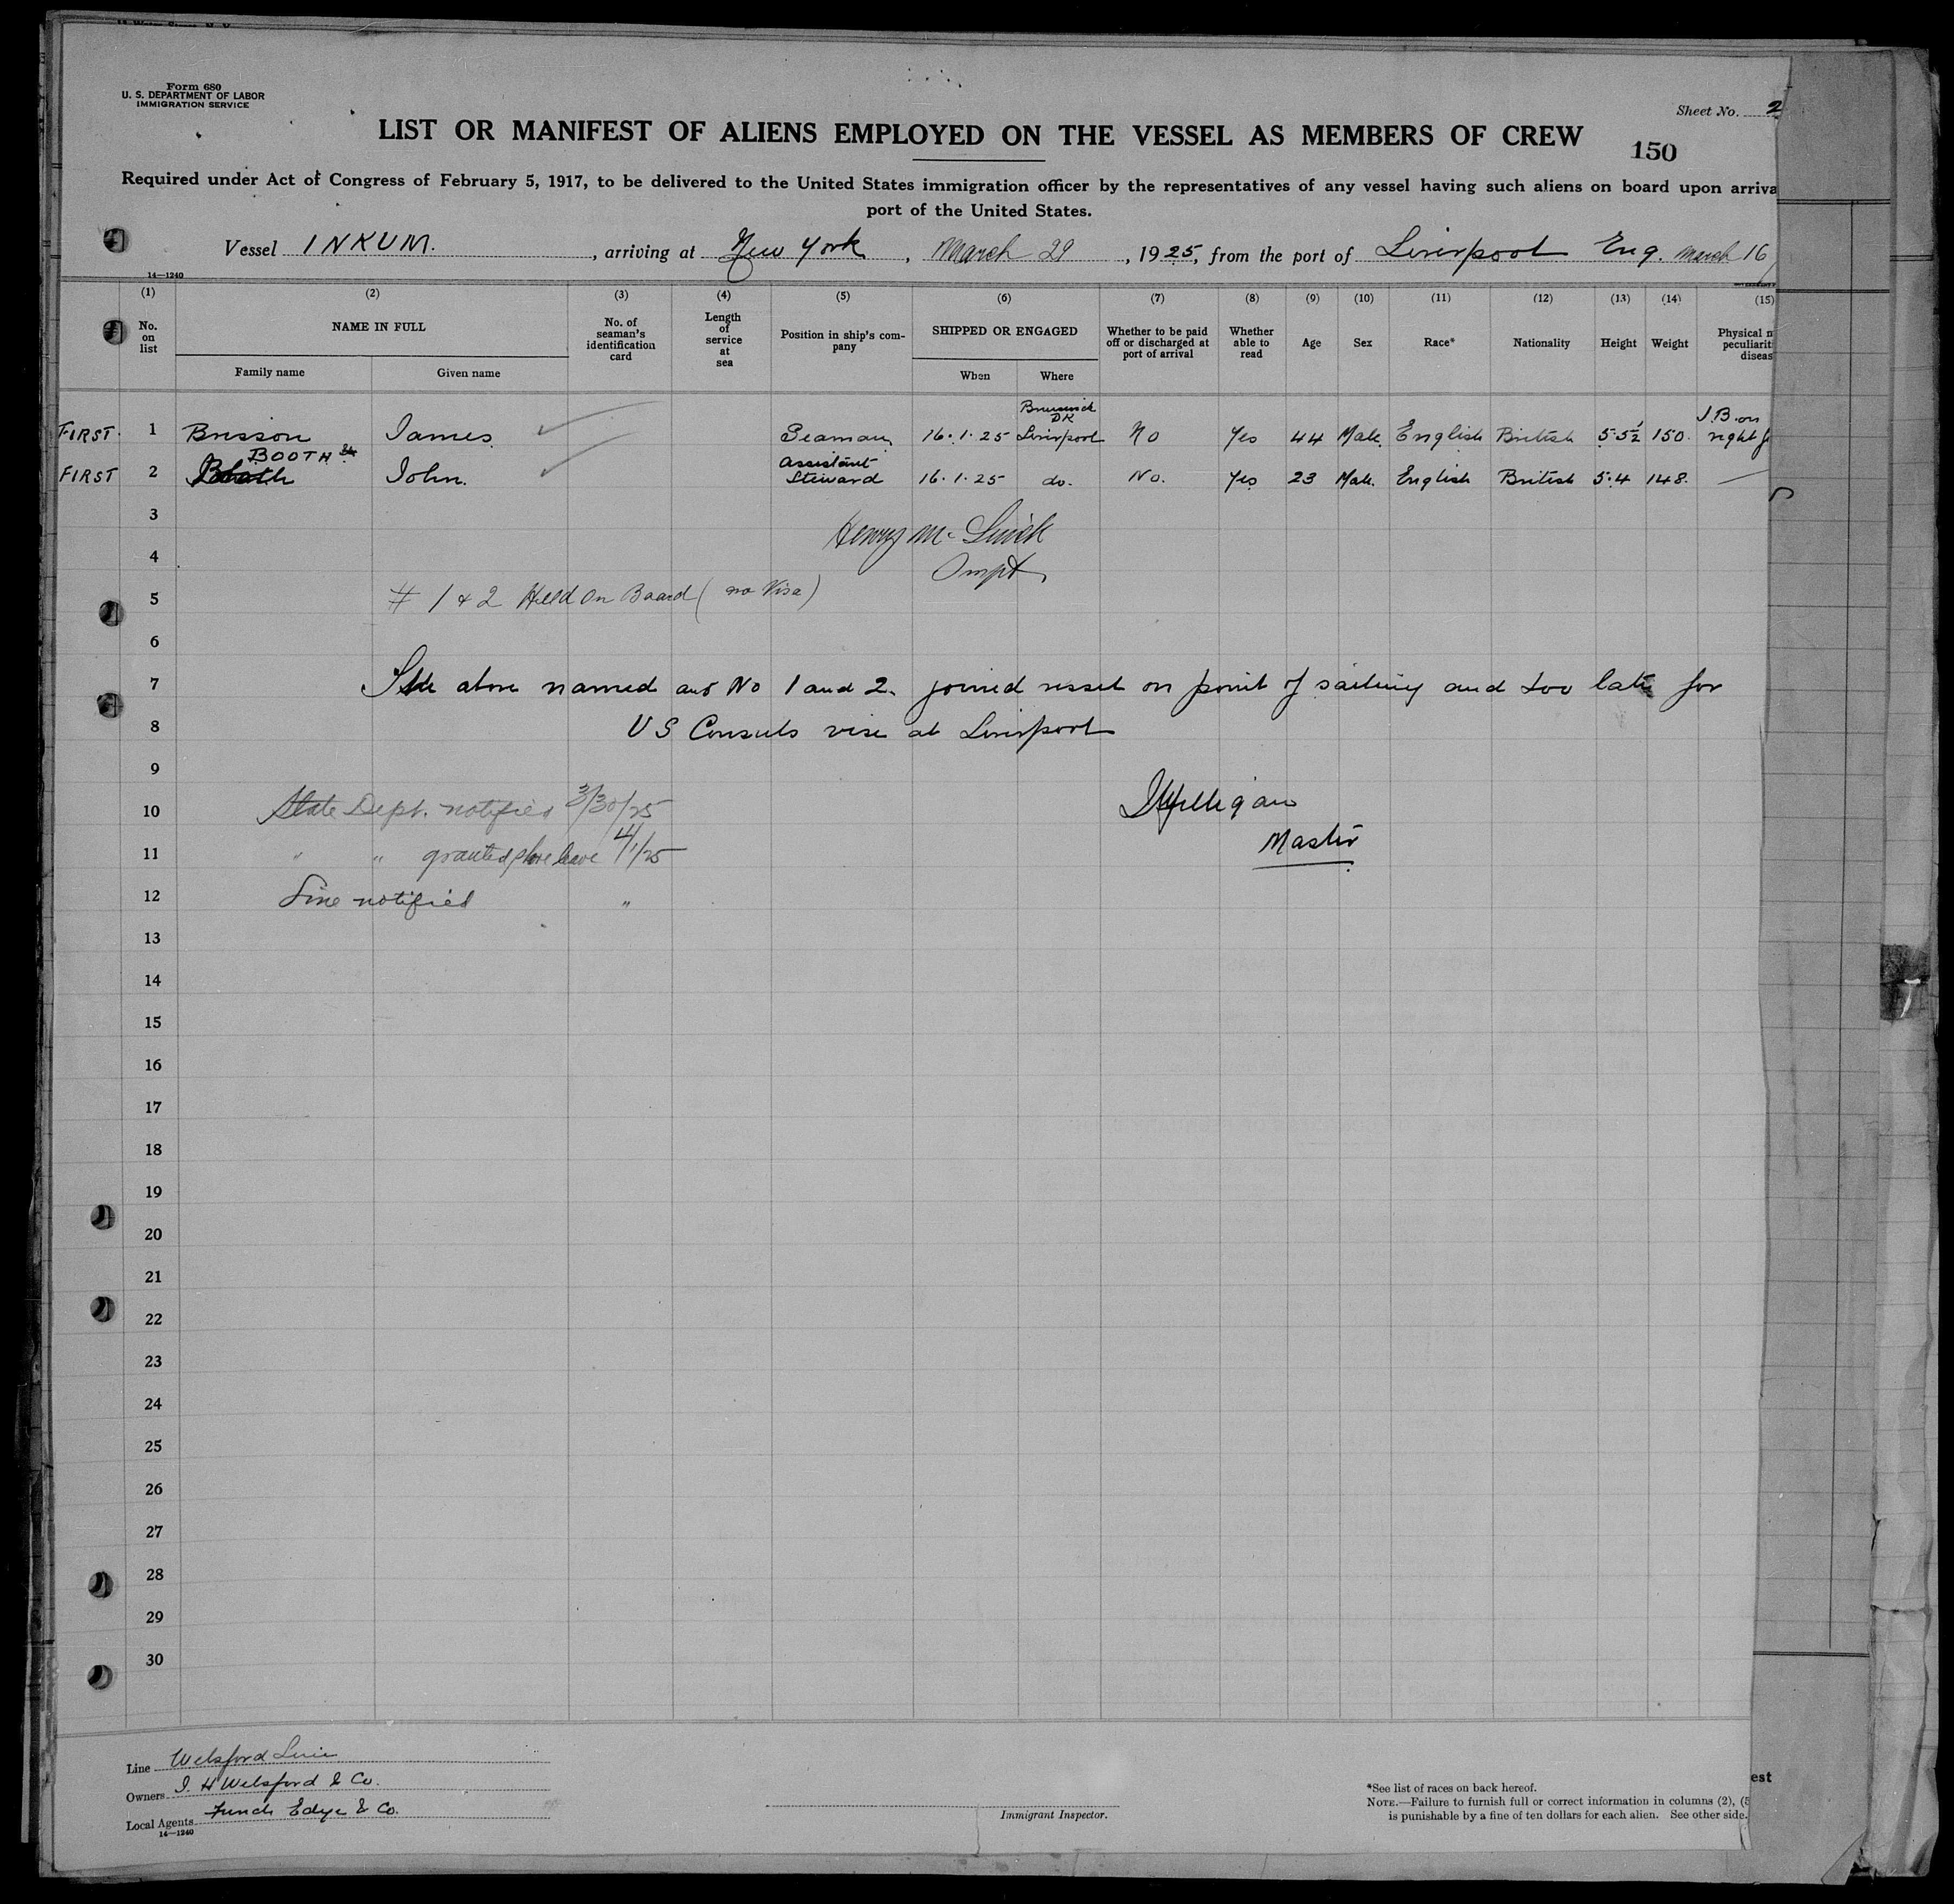 Form 680
U. S. DEPARTMENT OF LABOR
IMMIGRATION SERVICE
Sheet No. 2
LIST OR MANIFEST OF ALIENS EMPLOYED ON THE VESSEL AS MEMBERS OF CREW
150
Required under Act of Congress of February 5, 1917, to be delivered to the United States immigration officer by the representatives of any vessel having such aliens on board upon arriva
port of the United States.
Vessel INKUM., arriving at New York, March 29, 1925, from the port of Liverpool Eng. March 16
14—1240
(1) (2) (3) (4) (5) (6) (7) (8) (9) (10) (11) (12) (13) (14) (15)
No. on list
NAME IN FULL
Family name
Given name
No. of seaman's identification card
Length of service at sea
Position in ship's company
SHIPPED OR ENGAGED
When
Where
Whether to be paid off or discharged at port of arrival
Whether able to read
Age
Sex
Race*
Nationality
Height
Weight
Physical m
peculiarit
diseas
FIRST. 1 Brisson James. Seaman 16.1.25 Brunswick DK Liverpool No Yes 44 Male. English British 5.5½ 150. J.B. on right
FIRST 2 BOOTH John. Assistant Steward 16.1.25 do. No. Yes 23 Male. English British 5.4 148. —
3
Henry
4
5 # 1 & 2 Held On Board (no Visa)
6
7 The above named and No 1 and 2. joined vessel on point of sailing and too late for
8 US Consuls vise at Liverpool
9
10 State Dept. notified 3/30/25
Milligan
11 " " granted shore leave 4/1/25
Master
12 Line notified "
13
14
15
16
17
18
19
20
21
22
23
24
25
26
27
28
29
30
Line Welsford Line
Owners J. H Welsford & Co.
Local Agents Funch Edye & Co.
14—1240
Immigrant Inspector.
*See list of races on back hereof.
NOTE.—Failure to furnish full or correct information in columns (2), (5
is punishable by a fine of ten dollars for each alien. See other side.
est